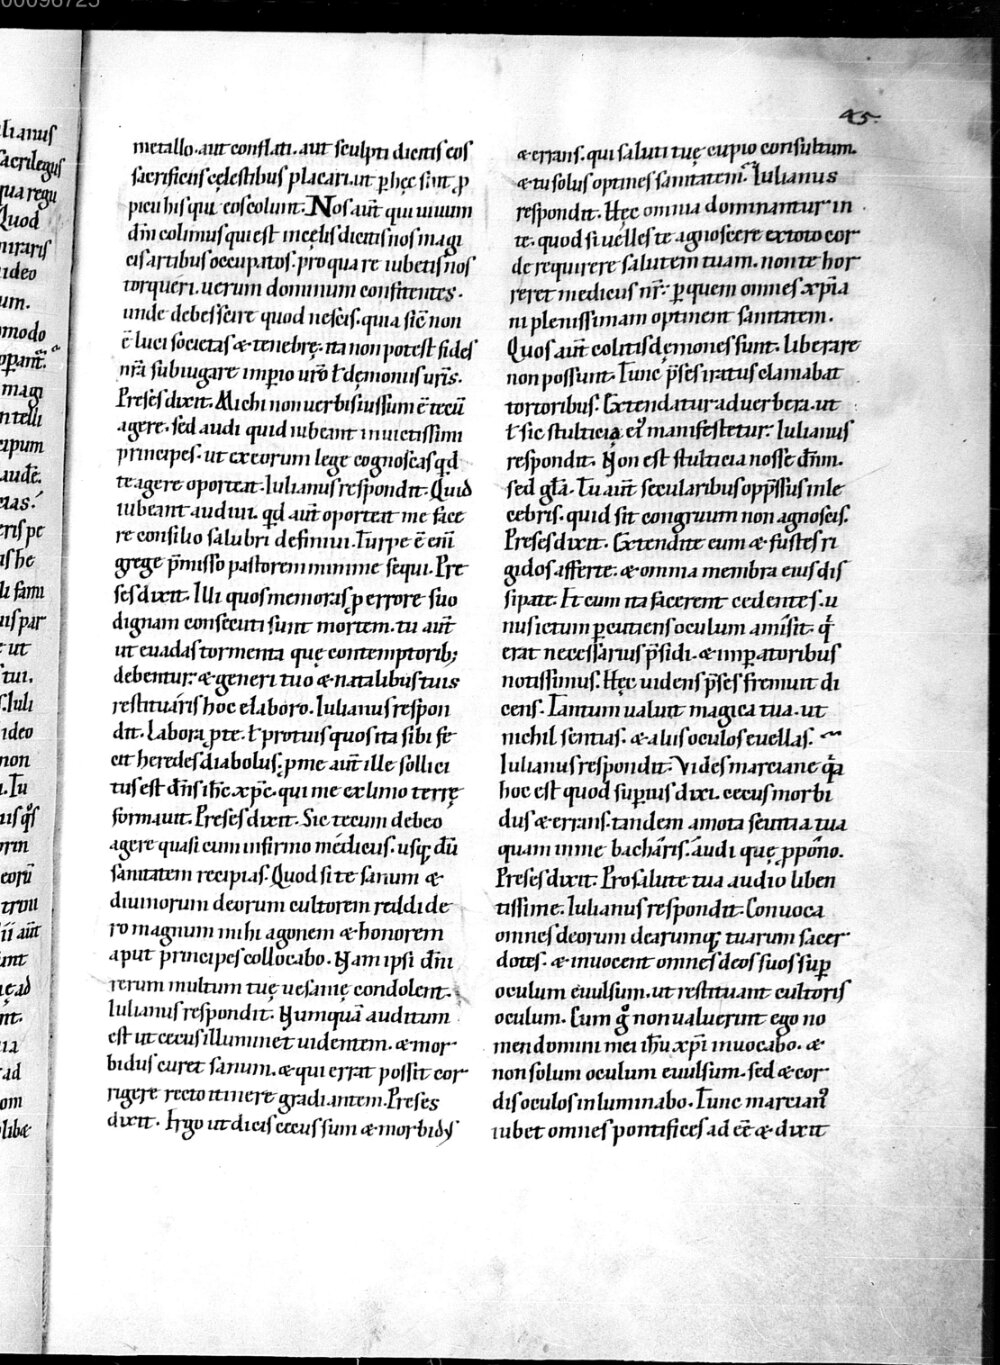 00098725
45.
lianus
sacrilegus
qua regu
Quod
miraris
ideo
um.
modo
opant̄.
magi
ntelli
cipum
audē.
cias.
eris pc
as he
li fami
uis par
ut
tui.
s. Iuli
ideo
non
. Tu
corū
aūt
unt
ę ad
nt.
ia
ad
om
libę
metallo. aut conflati. aut sculpti dicitis eos
sacrificiis cęlestibus placari. ut ꝑ hęc sint ꝓ
picii his qui eos colunt. Nos aūt qui uiuum
dm̄ colimus qui est in cęlis dicitis nos magi
cis artibus occupatos. pro qua re iubetis nos
torqueri. uerum dominum confitentes.
unde debes scire quod nescis. quia sic̄ non
ē luci societas & tenebrę. ita non potest fides
nr̄a subiugare imp̱io ur̄o ł dęmoniis ur̄is.
Preses dixit. Michi non uerbis iussum ē tecū
agere. sed audi quid iubeant inuictissimi
principes. ut ex eorum lege cognoscas qđ
te agere oporteat. Iulianus respondit. Quid
iubeant audiui. qđ aūt oporteat me face
re consilio salubri definiui. Turpe ē eni̅
grege p̄misso pastorem minime sequi. Pre
ses dixit. Illi quos memoras ꝓ errore suo
dignam consecuti sunt mortem. tu aūt
ut euadas tormenta quę contemptorib;
debentur: & generi tuo & natalibus tuis
restituáris hoc elaboro. Iulianus respon
dit. Labora ꝓ te. ł pro tuis quos ita sibi fe
cit heredes diabolus. ꝓ me aūt ille sollici
tus est dn̄s ih̄c xp̄c. qui me ex limo terrę
formauit. Preses dixit. Sic tecum debeo
agere quasi cum infirmo médicus. usq; dū
sanitatem recipias. Quod si te sanum &
diuinorum deorum cultorem reddide
ro magnum mihi agonem & honorem
aput principes collocabo. Nam ipsi dn̄i
rerum multum tuę uesanię condolent.
Iulianus respondit. Numquā auditum
est ut cecus illuminet uidentem. & mor
bidus curet sanum. & qui errat possit cor
rigere recto itinere gradiantem. Preses
dixit. Ergo ut dicis cecus sum & morbidus
& errans. qui saluti tuę cupio consultum.
& tu solus optines sanitatem. Iulianus
respondit. Hęc omnia dominantur in
te. quod si uelles te agnoscere ex toto cor
de requirere salutem tuam. non te hor
reret medicus nr̄. ꝑ quem omnes xp̄ia
ni plenissimam optinent sanitatem.
Quos aūt colitis dęmones sunt. liberare
non possunt. Tunc p̄ses iratus clamabat
tortoribus. Extendatur ad uerbera. ut
ł sic stulticia ei᾽ manifestetur. Iulianus
respondit. Non est stulticia nosse dn̄m.
sed gl̄a. Tu aūt secularibus opp̄ssus inle
cebris. quid sit congruum non agnoscis.
Preses dixit. Extendite eum & fustes ri
gidos afferte. & omnia membra eius dis
sipate. Et cum ita facerent cedentes. u
nus ictum ꝑcutiens oculum amisit. q᷑
erat necessarius p̄sidi. & imꝑatoribus
notissimus. Hęc uidens p̄ses fremuit di
cens. Tantum ualuit magica tua. ut
nichil sentias. & aliis oculos euellas.
Iulianus respondit. Vides marciane qa
hoc est quod suꝑius dixi. cecus morbi
dus & errans. tandem amota seuitia tua
quam in me bacháris. áudi quę ꝓpóno.
Preses dixit. Pro salute tua audio liben
tissime. Iulianus respondit. Conuoca
omnes deorum dearumq; tuarum sacer
dotes. & inuocent omnes deos suos suꝑ
oculum euulsum. ut restituant cultoris
oculum. Cum gͦ non ualuerint ego no
men domini mei ih̄u xp̄i inuocabo. &
non solum oculum euulsum. sed & cor
dis oculos inluminabo. Tunc marcian᾽
iubet omnes pontifices adēē & dixit